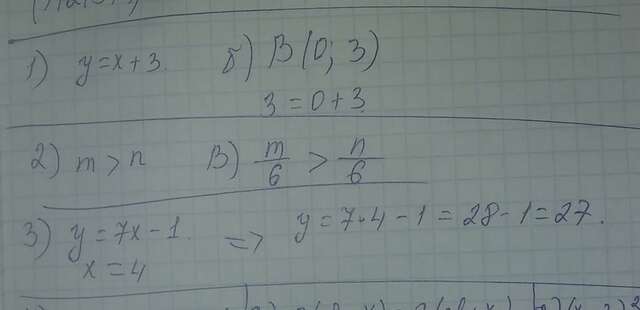 1) y=x+3. б) B(0; 3)
3=0+3
2) m>n В) m/6 > n/6
3) y=7x-1. => y=7·4-1=28-1=27.
x=4